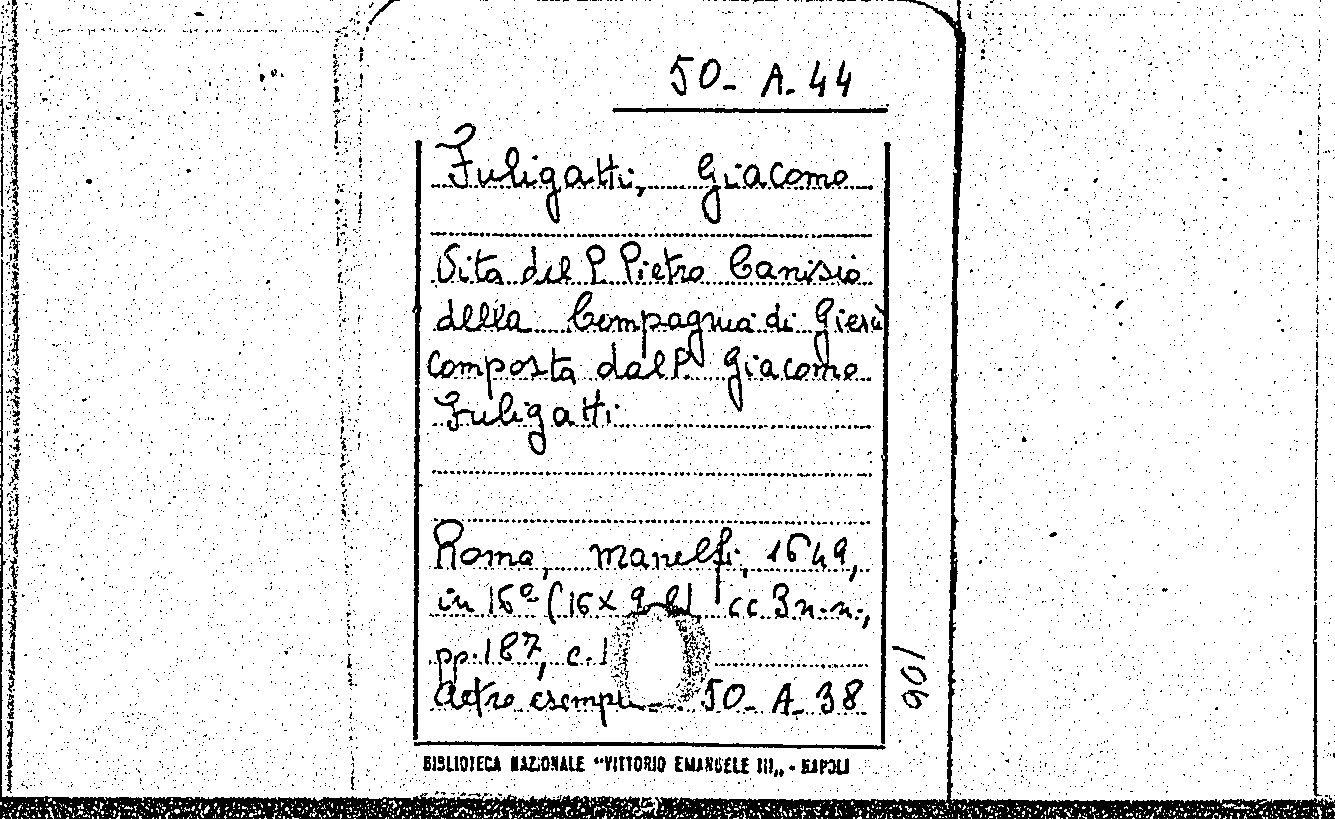 50- A- 44
Fuligatti, Giacomo
Vita del P. Pietro Canisio
della Compagnia di Giesù
composta dal P. Giacomo
Fuligatti
Roma, Manelfi, 1649,
in 16º (16x cc 3 n.n.,
pp. 187, c. 1
Altro 50- A- 38
106
BIBLIOTECA NAZIONALE "VITTORIO EMANUELE III„ - NAPOLI